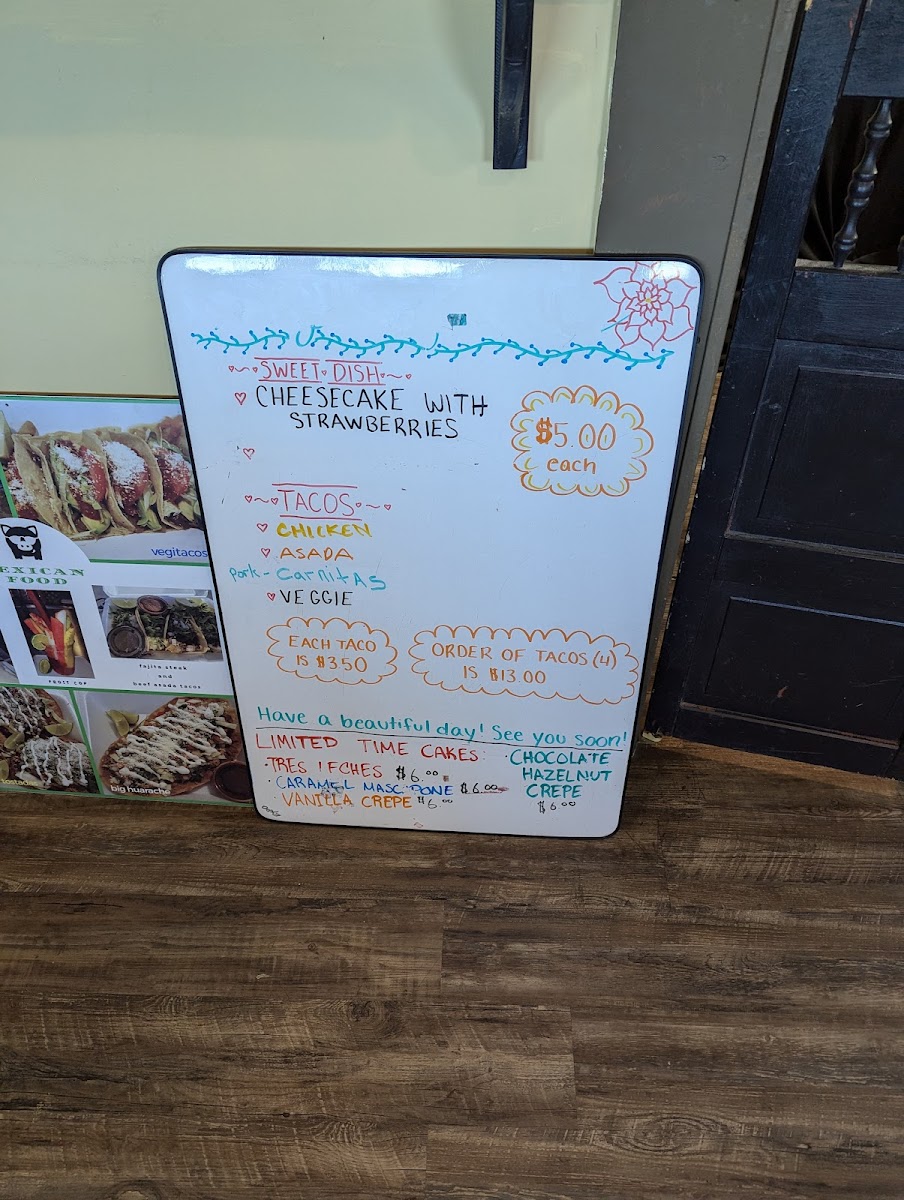 SWEET DISH
CHEESECAKE WITH
STRAWBERRIES
$5.00
each
TACOS
CHICKEN
ASADA
Pork - CarnitAS
VEGGIE
EACH TACO
IS $3.50
ORDER OF TACOS (4)
IS $13.00
Have a beautiful day! See you soon!
LIMITED TIME CAKES:
TRES LECHES $6.00
CARAMEL MASC PONE $6.00
VANILLA CREPE $6.00
CHOCOLATE
HAZELNUT
CREPE
$6.00
vegitacos
EXICAN
FOOD
FRUIT CUP
fajita steak
and
beef asada tacos
big huarache